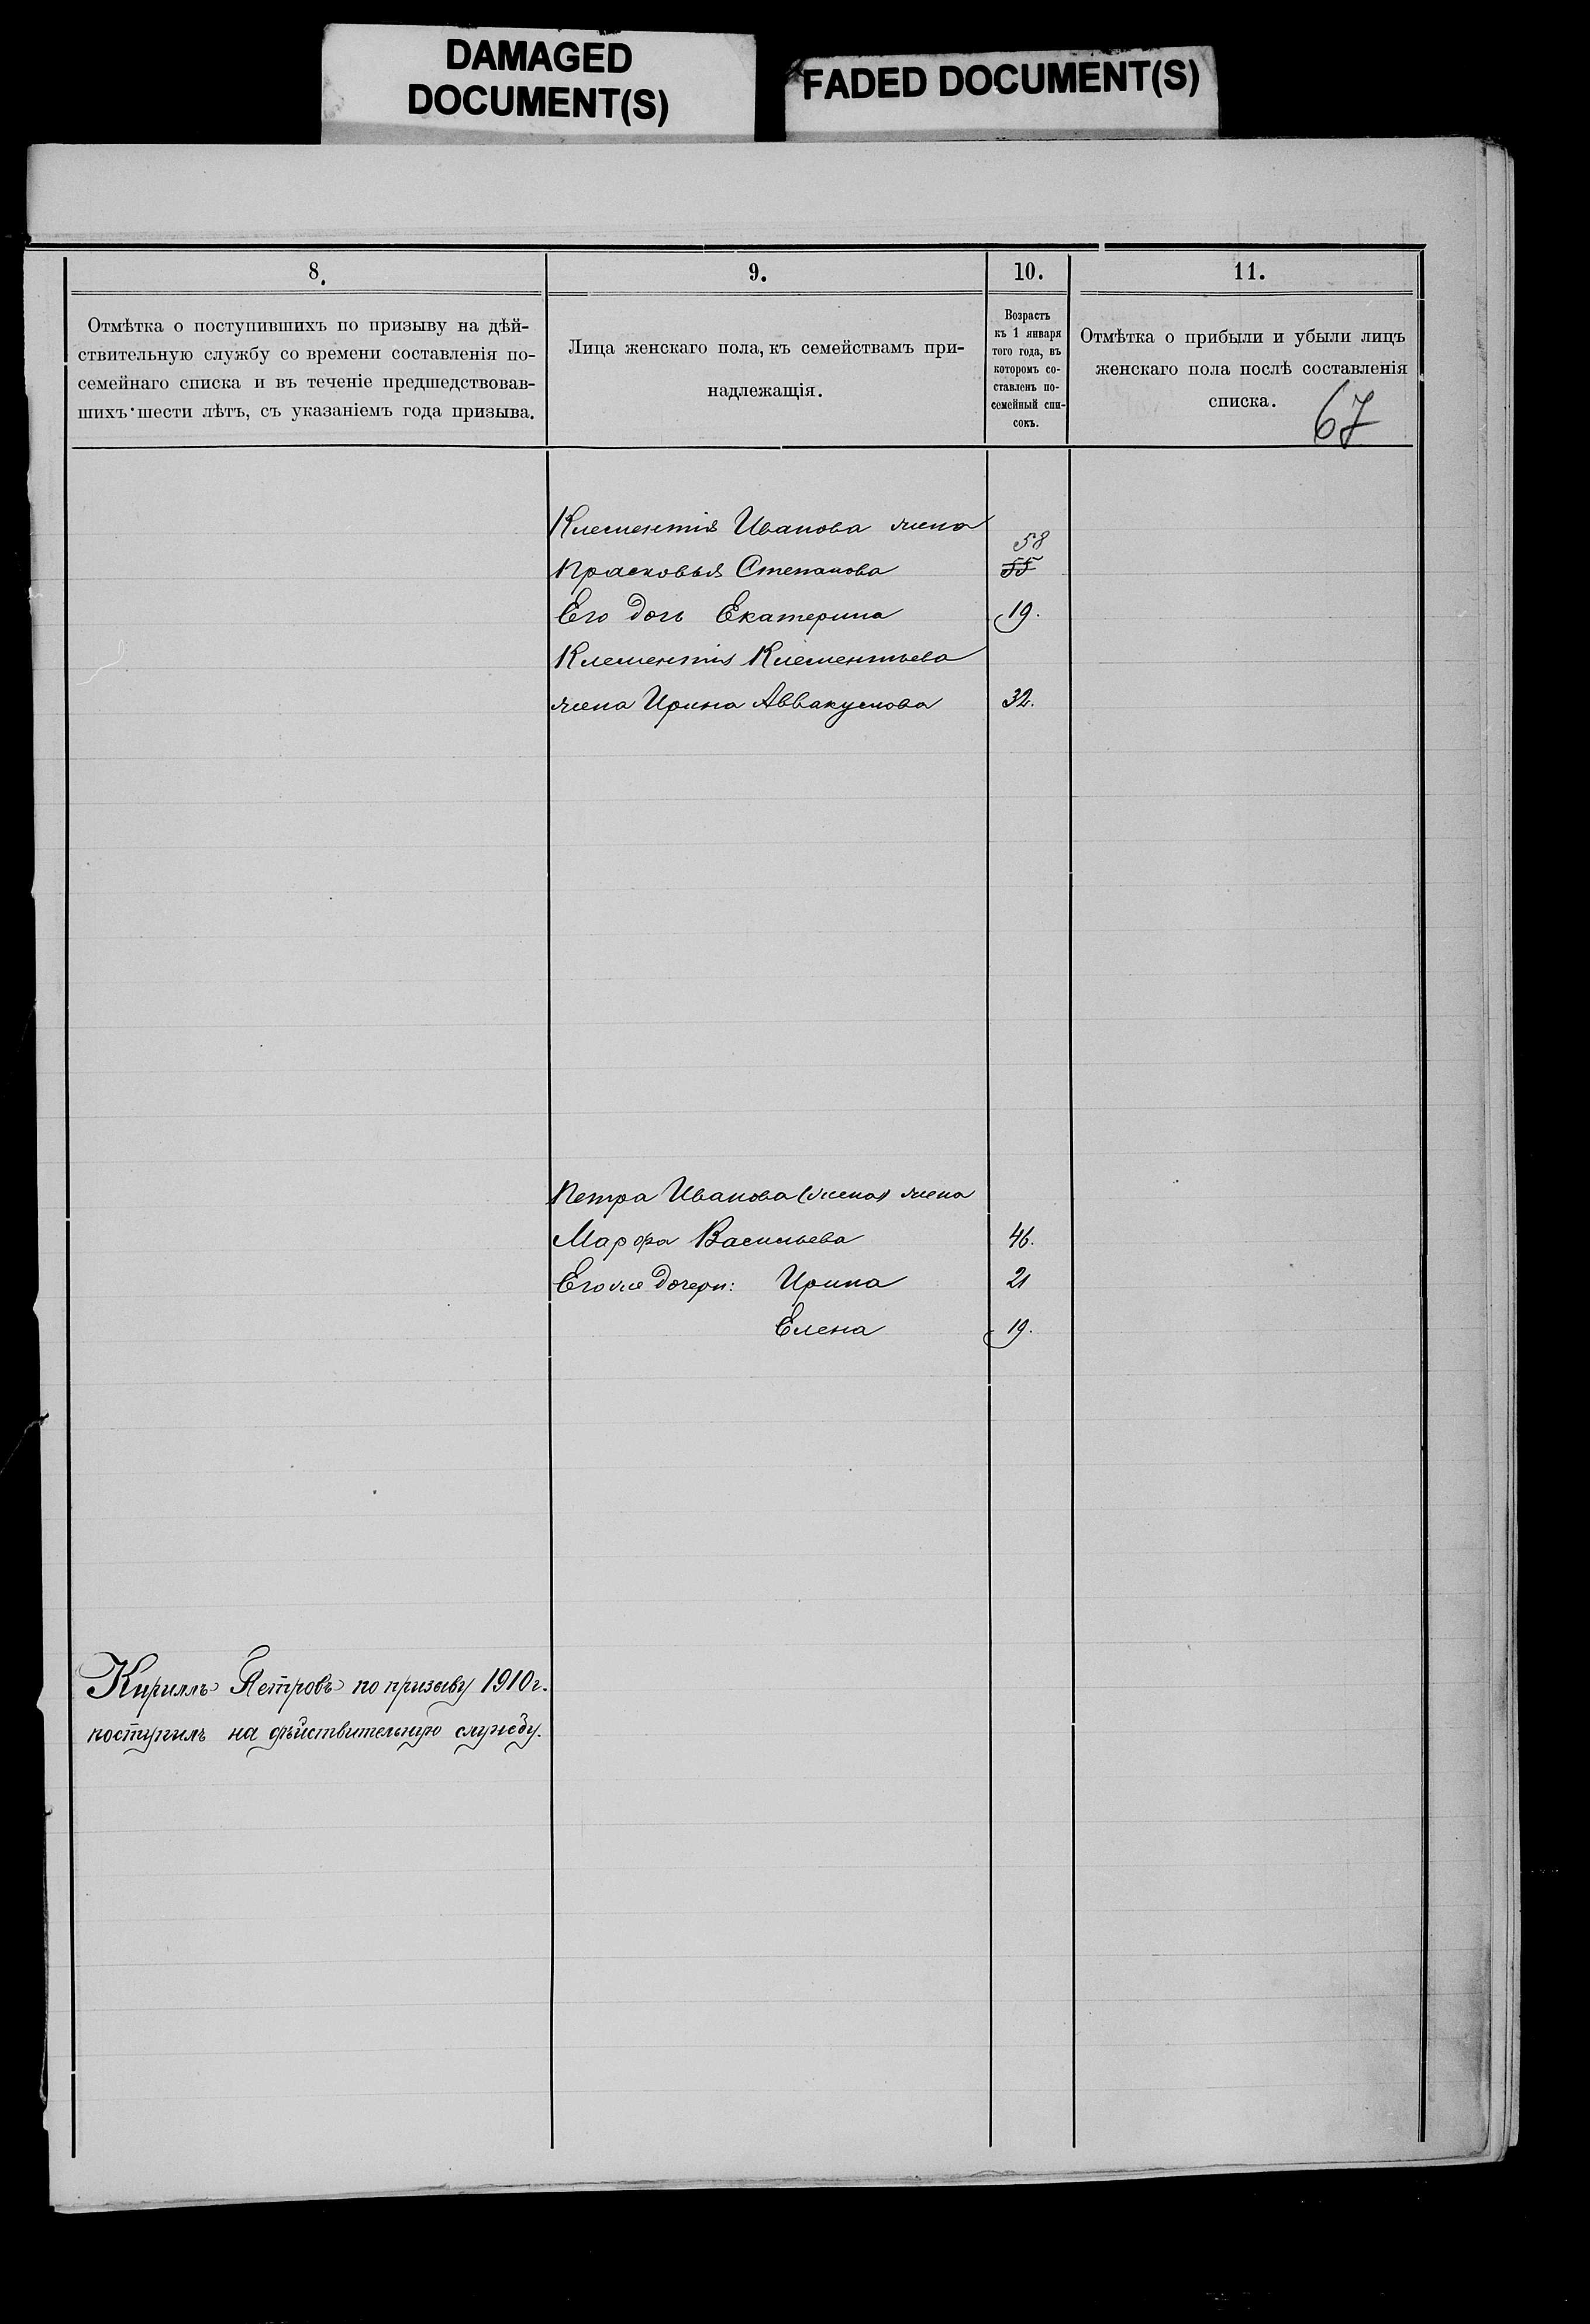 DAMAGED
DOCUMENT(S)
FADED DOCUMENT(S)
8.
9.
10.
11.
Отмѣтка о поступившихъ по призыву на дѣй-
ствительную службу со времени составленія по-
семейнаго списка и въ теченіе предшедствовав-
шихъ шести лѣтъ, съ указаніемъ года призыва.
Лица женскаго пола, къ семействамъ при-
надлежащія.
Возрастъ
къ 1 января
того года, въ
которомъ со-
ставленъ по-
семейный спи-
сокъ.
Отмѣтка о прибыли и убыли лицъ
женскаго пола послѣ составленія
списка.
67
Клементія Иванова жена
58
Прасковья Степанова 55
Его дочь Екатерина 19.
Клементія Клементьева
жена Ирина Аввакумова 32.
Петра Иванова (жена) жена
Марфа Васильева 46.
Его же дочери: Ирина 21
Елена 19.
Кириллъ Петровъ по призыву 1910 г.
поступилъ на дѣйствительную службу.